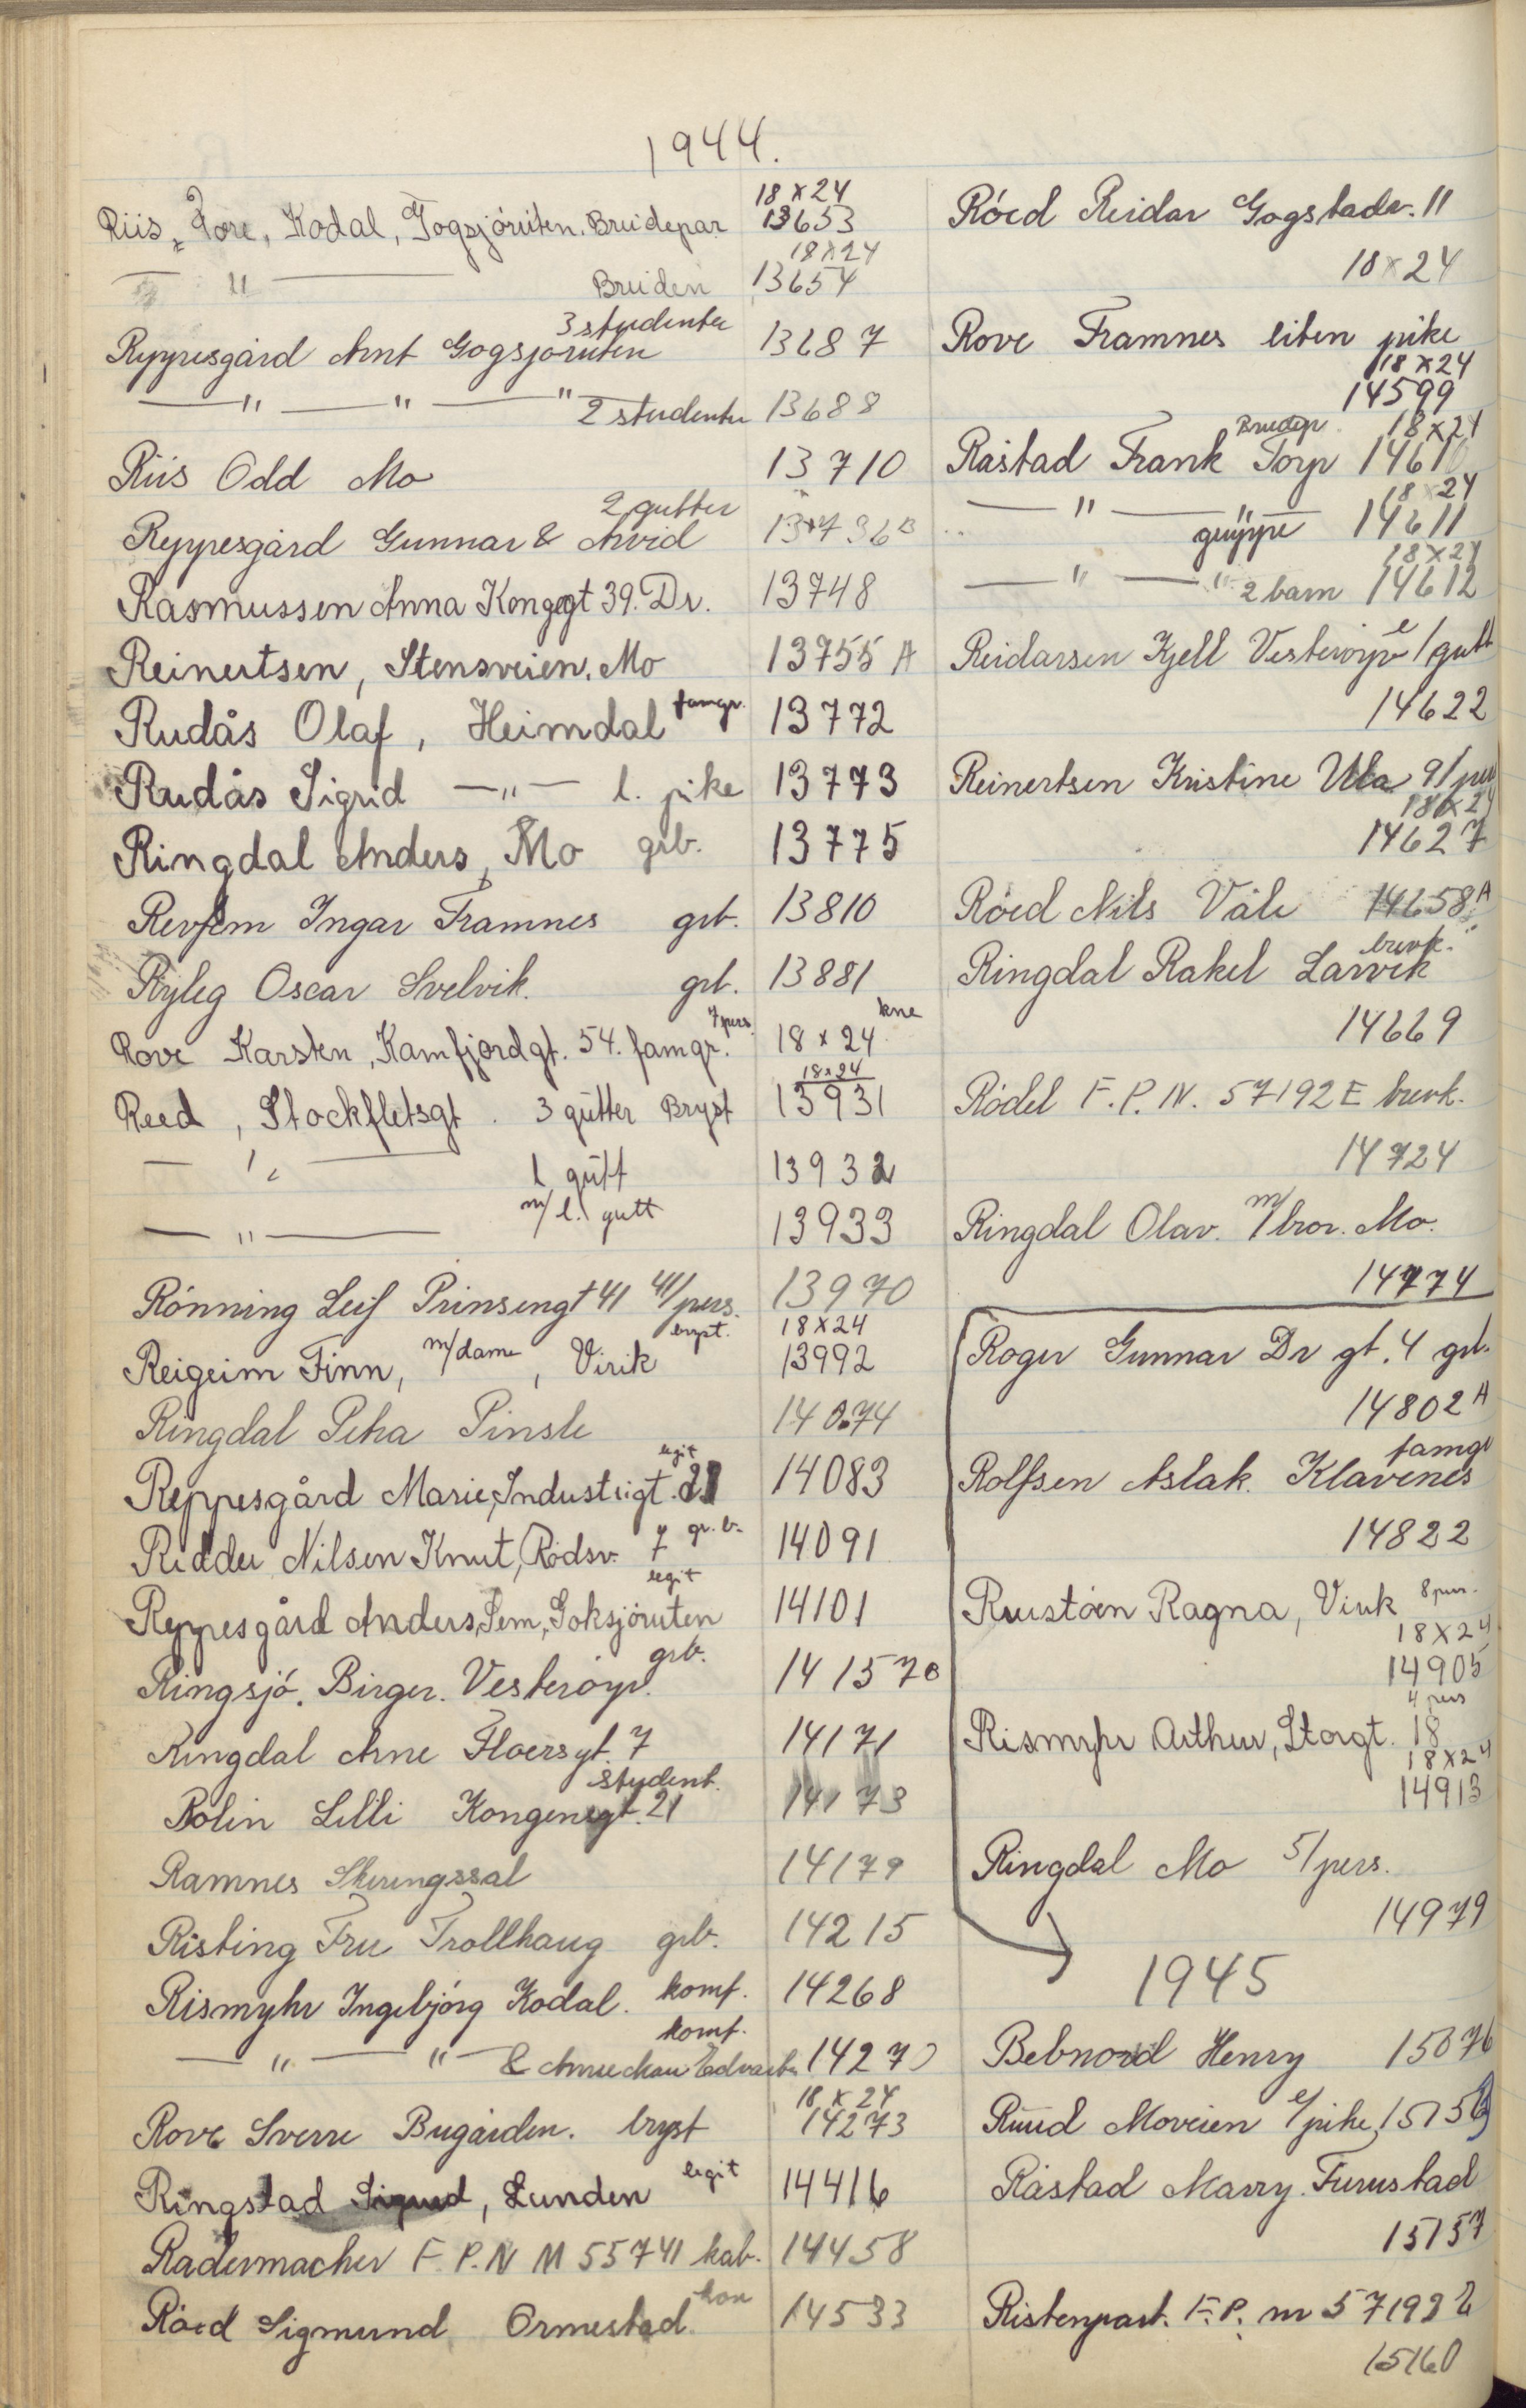 1944.
Riis, Tore, Kodal, Gogsjöruten. Brudepar 18x24 13653
" Bruden 18x24 13654
Reppesgård Arnt Gogsjøruten 3 studenter 13687
— " — " — " 2 studenter 13688
Riis Odd Mo 13710
Reppesgård Gunnar & Arvid 2 gutter 13736B
Rasmussen Anna Kongegt 39. Dr. 13748
Reinertsen, Stensveien, Mo 13755 A
Rudås Olaf, Heimdal famgr. 13772
Rudås Sigrid — " — l. pike 13773
Ringdal Anders, Mo grb. 13775
Revfem Ingar Framnes grb. 13810
Ryleg Oscar Svelvik. grb. 13881
Rove Karsten, Kamfjordgt. 54. famgr. 7 pers. 18x24 kne
Reed, Stockfletsgt. 3 gutter Bryst 18x24 13931
— " — 1 gutt 13932
— " — m/l. gutt 13933
Rönning Leif Prinsensgt 41 4/pers. 13970
Reigeim Finn, m/dame, Virik bryst. 18x24 13992
Ringdal Petra Pinsle 14074
Reppesgård Marie, Industrigt. legit 14083
Ridder Nilsen Knut, Rödsv. 7 gr.b. 14091
Reppesgård Anders, Sem, Goksjöruten legit 14101
Ringsjö. Birger. Vesteröyv. grb. 14157B
Ringdal Arne Floersgt. 7 14171
Rolin Lilli Kongensgt. 21 student. 14173
Ramnes Skiringssal 14179
Risting Fru Trollhaug grb. 14215
Rismyhr Ingebjörg Kodal. komf. 14268
— " — " — & komf. 14270
Rove Sverre Bugården. bryst 18x24 14273
Ringstad Sigurd, Lunden legit 14416
Radermacher F.P.N M 55741 kab. 14458
Röed Sigmund Ormestad kon 14533
Röed Reidar Gogstadv. 11
18x24
Rove Framnes liten pike
18x24
14599
Råstad Frank Torp Brudepr. 18x24 14610
— " — " gruppe 18x24 14611
— " — " 2 barn 18x24 14612
Reidarsen Kjell Vesteröyv l/gutt
14622
Reinertsen Kristine Ula 9/pers
18x24
14627
Röed Nils Våle 14658A
Ringdal Rakel Larvik brevk.
14669
Rödel F.P.N. 57192E brevk.
14724
Ringdal Olav. m/bror. Mo.
14774
Roger Gunnar Dr gt. 4 grb.
14802A
Rolfsen Aslak. Klavenes famgr
14822
Rustöen Ragna, Virik 8 pers.
18x24
14905
Rismyhr Arthur, Storgt. 18 4 pers
18x24
14913
Ringdal Mo 5/pers.
14979
1945
Bebnord Henry 15076
Ruud Moveien l/pike 15156
Råstad Marry. Furustad
15157
Ristenpart. F.P. nr 57192
15160